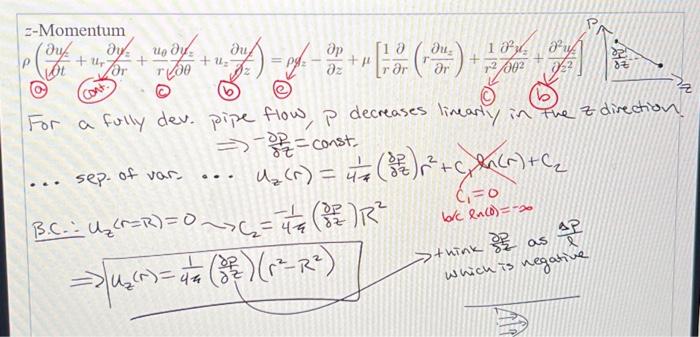 z-Momentum
ρ(∂u_z/∂t + u_r ∂u_z/∂r + u_θ/r ∂u_z/∂θ + u_z ∂u_z/∂z) = ρg_z − ∂p/∂z + μ[1/r ∂/∂r (r ∂u_z/∂r) + 1/r² ∂²u_z/∂θ² + ∂²u_z/∂z²]
P
∂P/∂z
z
a cont. c b e c b
For a fully dev. pipe flow, p decreases linearly in the z direction.
⇒ −∂P/∂z = const.
... sep. of var. ... u_z(r) = 1/4μ (∂P/∂z) r² + C₁ ln(r) + C₂
C₁=0
b/c ln(0)=-∞
B.C.: u_z(r=R)=0 ⇝ C₂ = -1/4μ (∂P/∂z) R²
⇒ u_z(r) = 1/4μ (∂P/∂z)(r²-R²)
think ∂P/∂z as ΔP/l
which is negative